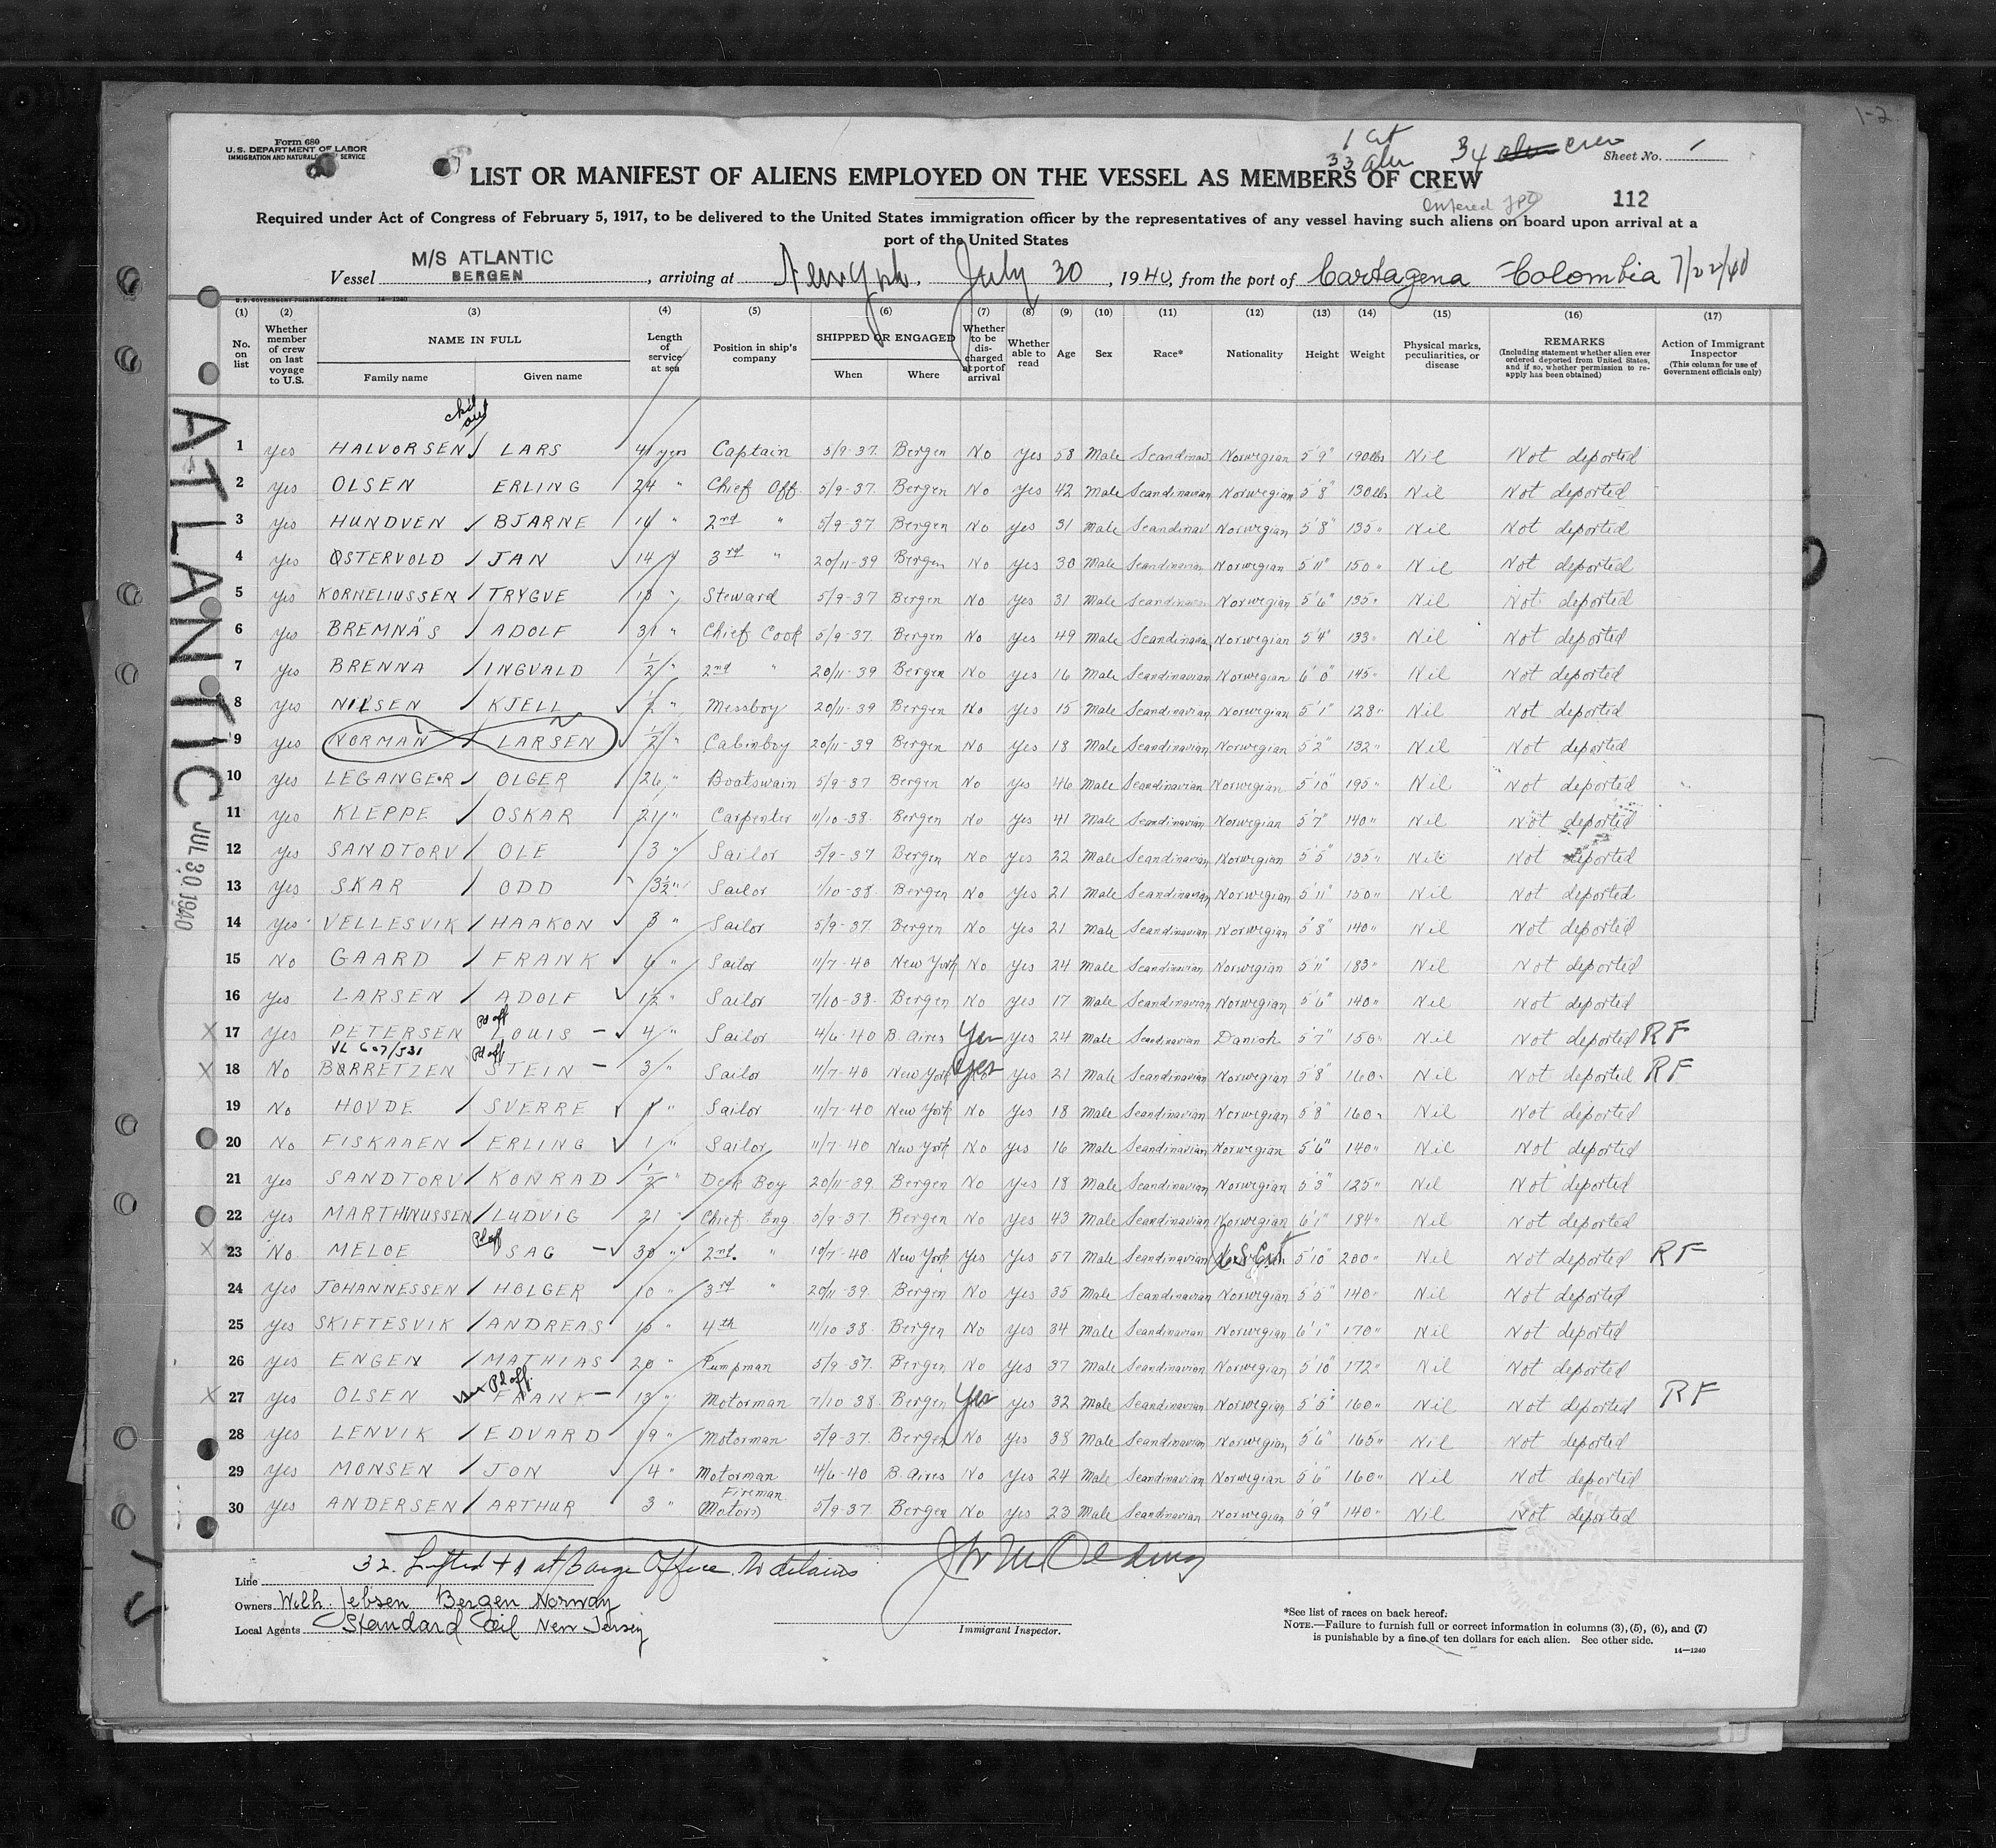 1-2
Form 680
U.S. DEPARTMENT OF LABOR
IMMIGRATION AND NATURALIZATION SERVICE
1 Cit
33 alien
34 crew
Sheet No. 1
LIST OR MANIFEST OF ALIENS EMPLOYED ON THE VESSEL AS MEMBERS OF CREW
112
Required under Act of Congress of February 5, 1917, to be delivered to the United States immigration officer by the representatives of any vessel having such aliens on board upon arrival at a
port of the United States
Vessel M/S ATLANTIC BERGEN, arriving at New York, July 30, 1940, from the port of Cartagena Colombia 7/22/40
U.S. GOVERNMENT PRINTING OFFICE 14-1240
(1) (2) (3) (4) (5) (6) (7) (8) (9) (10) (11) (12) (13) (14) (15) (16) (17)
No. on list
Whether member of crew on last voyage to U.S.
NAME IN FULL
Family name
Given name
Length of service at sea
Position in ship's company
SHIPPED OR ENGAGED
When
Where
Whether to be discharged at port of arrival
Whether able to read
Age
Sex
Race*
Nationality
Height
Weight
Physical marks, peculiarities, or disease
REMARKS
(Including statement whether alien ever ordered deported from United States, and if so, whether permission to reapply has been obtained)
Action of Immigrant Inspector
(This column for use of Government officials only)
ATLANTIC
JUL 30. 1940
1 Yes HALVORSEN LARS 41 yers Captain 5/9-37. Bergen No Yes 58 Male Scandinav Norwegian 5'9" 190lbs Nil Not deported
2 Yes OLSEN ERLING 24 " Chief Off. 5/9-37. Bergen No Yes 42 Male Scandinavian Norwegian 5'8" 130lbs Nil Not deported
3 Yes HUNDVEN BJARNE 14 " 2nd " 5/9-37 Bergen No Yes 31 Male Scandinav Norwegian 5'8" 135" Nil Not deported
4 Yes ØSTERVOLD JAN 14 " 3rd " 20/11-39 Bergen No Yes 30 Male Scandinavian Norwegian 5'11" 150" Nil Not deported
5 Yes KORNELIUSSEN TRYGVE " Steward 5/9-37 Bergen No Yes 31 Male Scandinavian Norwegian 5'6" 135" Nil Not deported
6 Yes BREMNÄS ADOLF 31 " Chief Cook 5/9-37. Bergen No Yes 49 Male Scandinavian Norwegian 5'4" 133" Nil Not deported
7 Yes BRENNA INGVALD 1/2 " 2nd " 20/11-39 Bergen No Yes 16 Male Scandinavian Norwegian 6'0" 145" Nil Not deported
8 Yes NILSEN KJELL 1/2 " Messboy 20/11-39 Bergen No Yes 15 Male Scandinavian Norwegian 5'1" 128" Nil Not deported
9 Yes NORMAN LARSEN 1/2 " Cabinboy 20/11-39 Bergen No Yes 18 Male Scandinavian Norwegian 5'2" 132" Nil Not deported
10 Yes LEGANGER OLGER 26 " Boatswain 5/9-37 Bergen No Yes 46 Male Scandinavian Norwegian 5'10" 195" Nil Not deported
11 Yes KLEPPE OSKAR 21 " Carpenter 11/10-38. Bergen No Yes 41 Male Scandinavian Norwegian 5'7" 140" Nil Not deported
12 Yes SANDTORV OLE 3 " Sailor 5/9-37 Bergen No Yes 22 Male Scandinavian Norwegian 5'5" 135" Nil Not deported
13 Yes SKAR ODD 3 1/2 " Sailor 1/10-38. Bergen No Yes 21 Male Scandinavian Norwegian 5'11" 150" Nil Not deported
14 Yes VELLESVIK HAAKON 3 " Sailor 5/9-37. Bergen No Yes 21 Male Scandinavian Norwegian 5'8" 140" Nil Not deported
15 No GAARD FRANK " Sailor 11/7-40 New York No Yes 24 Male Scandinavian Norwegian 5'11" 183" Nil Not deported
16 Yes LARSEN ADOLF 1 1/2 " Sailor 7/10-38. Bergen No Yes 17 Male Scandinavian Norwegian 5'6" 140" Nil Not deported
X 17 Yes PETERSEN Pd off LOUIS 4 " Sailor 4/6-40 B. Aires Yes Yes 24 Male Scandinavian Danish 5'7" 150" Nil Not deported RF
X 18 No BØRRETZEN Pd off STEIN 3 " Sailor 11/7-40 New York Yes Yes 21 Male Scandinavian Norwegian 5'8" 160" Nil Not deported RF
19 No HOVDE SVERRE " Sailor 11/7-40 New York No Yes 18 Male Scandinavian Norwegian 5'8" 160" Nil Not deported
20 No FISKAAEN ERLING 1 " Sailor 11/7-40 New York No Yes 16 Male Scandinavian Norwegian 5'6" 140" Nil Not deported
21 Yes SANDTORV KONRAD 1/2 " Deck Boy 20/11-39. Bergen No Yes 18 Male Scandinavian Norwegian 5'3" 125" Nil Not deported
22 Yes MARTHINUSSEN LUDVIG 21 " Chief Eng 5/9-37. Bergen No Yes 43 Male Scandinavian Norwegian 6'1" 184" Nil Not deported
X 23 No MELOE Pd off ISAG 30 " 2nd. " 10/7-40 New York Yes Yes 57 Male Scandinavian U S Cit 5'10" 200" Nil Not deported RF
24 Yes JOHANNESSEN HOLGER 10 " 3rd " 20/11-39. Bergen No Yes 35 Male Scandinavian Norwegian 5'5" 140" Nil Not deported
25 Yes SKIFTESVIK ANDREAS 10 " 4th 11/10 38. Bergen No Yes 34 Male Scandinavian Norwegian 6'1" 170" Nil Not deported
26 Yes ENGEN MATHIAS 20 " Pumpman 5/9-37. Bergen No Yes 37 Male Scandinavian Norwegian 5'10" 172" Nil Not deported
X 27 Yes OLSEN Pd off FRANK 13 " Motorman 7/10 38. Bergen Yes Yes 32 Male Scandinavian Norwegian 5'5" 160" Nil Not deported RF
28 Yes LENVIK EDVARD 19 " Motorman 5/9-37. Bergen No Yes 38 Male Scandinavian Norwegian 5'6" 165" Nil Not deported
29 Yes MONSEN JON 4 " Motorman 4/6-40 B. Aires No Yes 24 Male Scandinavian Norwegian 5'6" 160" Nil Not deported
30 Yes ANDERSEN ARTHUR 3 " Fireman Motor 5/9-37. Bergen No Yes 23 Male Scandinavian Norwegian 5'9" 140" Nil Not deported
Line 32. Lifted + 1 at Barge Office. No detains
Owners Wilh. Jebsen Bergen Norway
Local Agents Standard Oil New Jersey
Immigrant Inspector.
*See list of races on back hereof.
NOTE.—Failure to furnish full or correct information in columns (3), (5), (6), and (7)
is punishable by a fine of ten dollars for each alien. See other side.
14—1240